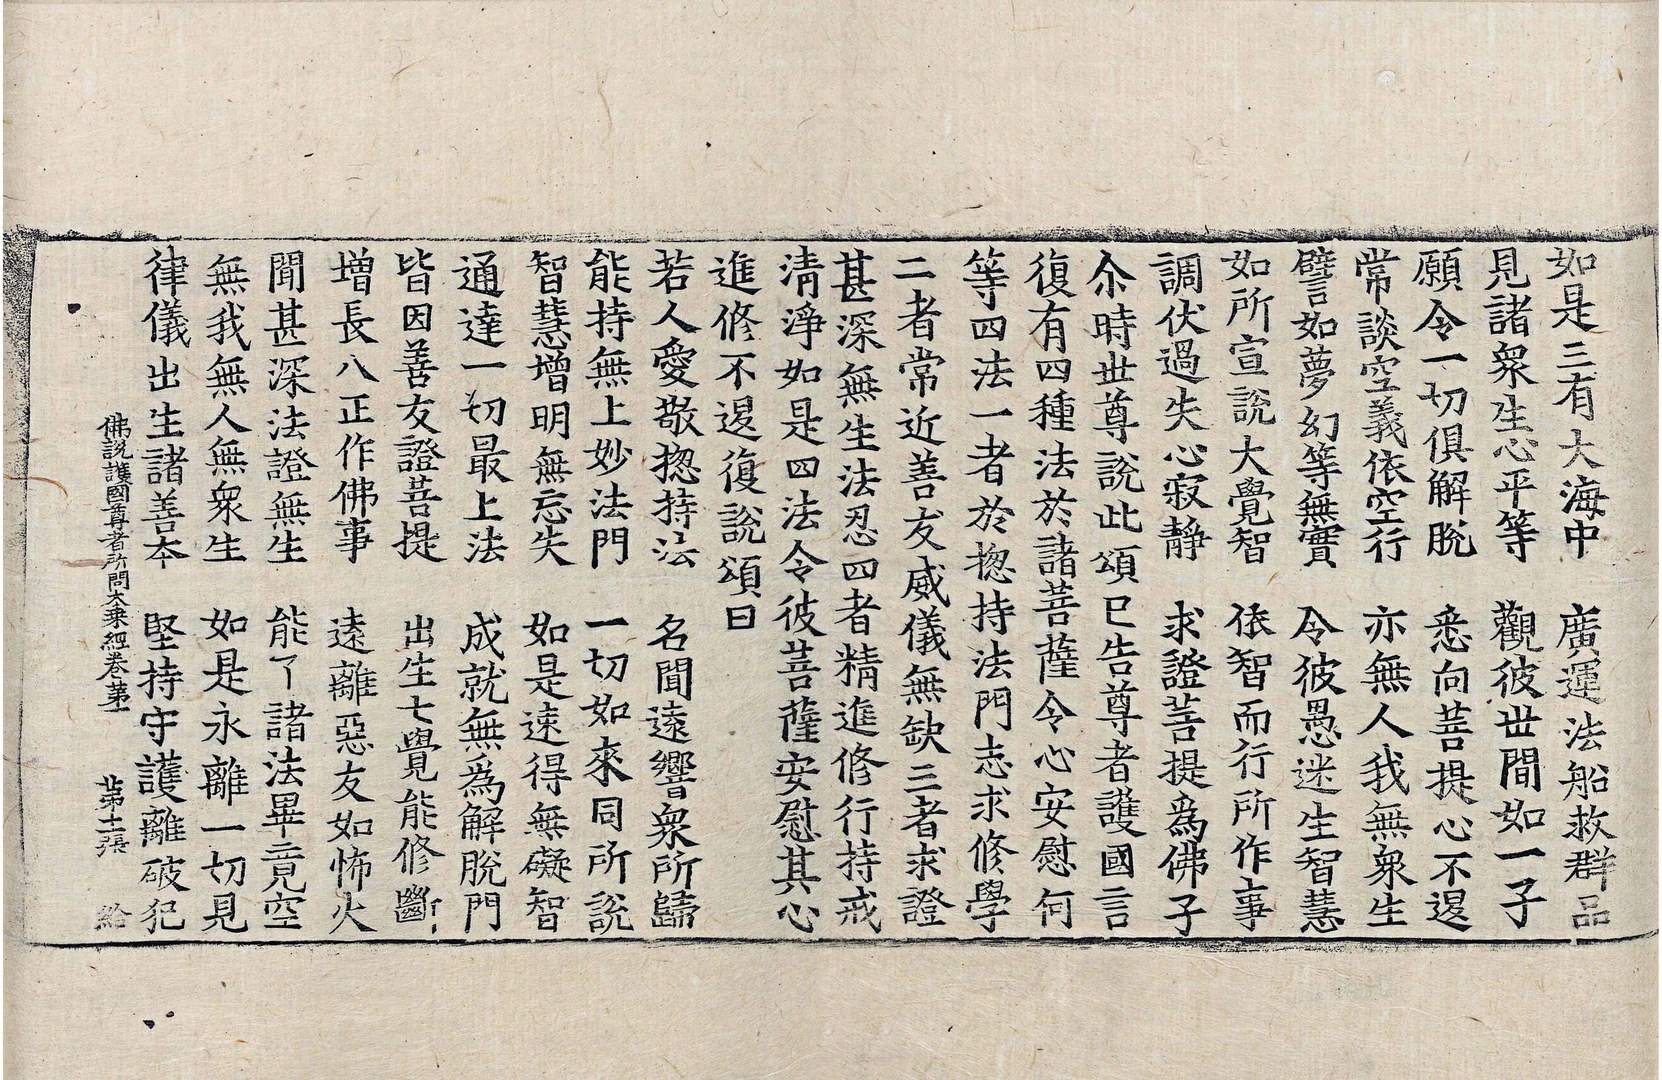 如是三有大海中　廣運法船救群品
見諸衆生心平等　觀彼世間如一子
願令一切俱解脫　悉向菩提心不退
常談空義依空行　亦無人我無衆生
譬如夢幻等無實　令彼愚迷生智慧
如所宣說大覺智　依智而行所作事
調伏過失心寂靜　求證菩提爲佛子
尒時世尊說此頌已告尊者護國言
復有四種法於諸菩薩令心安慰何
等四法一者於揔持法門志求修學
二者常近善友威儀無缺三者求證
甚深無生法忍四者精進修行持戒
清淨如是四法令彼菩薩安慰其心
進修不退復說頌曰
若人愛敬揔持法　名聞遠響衆所歸
能持無上妙法門　一切如來同所說
智慧增明無忘失　如是速得無礙智
通達一切最上法　成就無爲解脫門
皆因善友證菩提　出生七覺能修斷
增長八正作佛事　遠離惡友如怖火
聞甚深法證無生　能了諸法畢竟空
無我無人無衆生　如是永離一切見
律儀出生諸善本　堅持守護離破犯
佛說護國尊者所問大乘經卷第一　第十二張　給